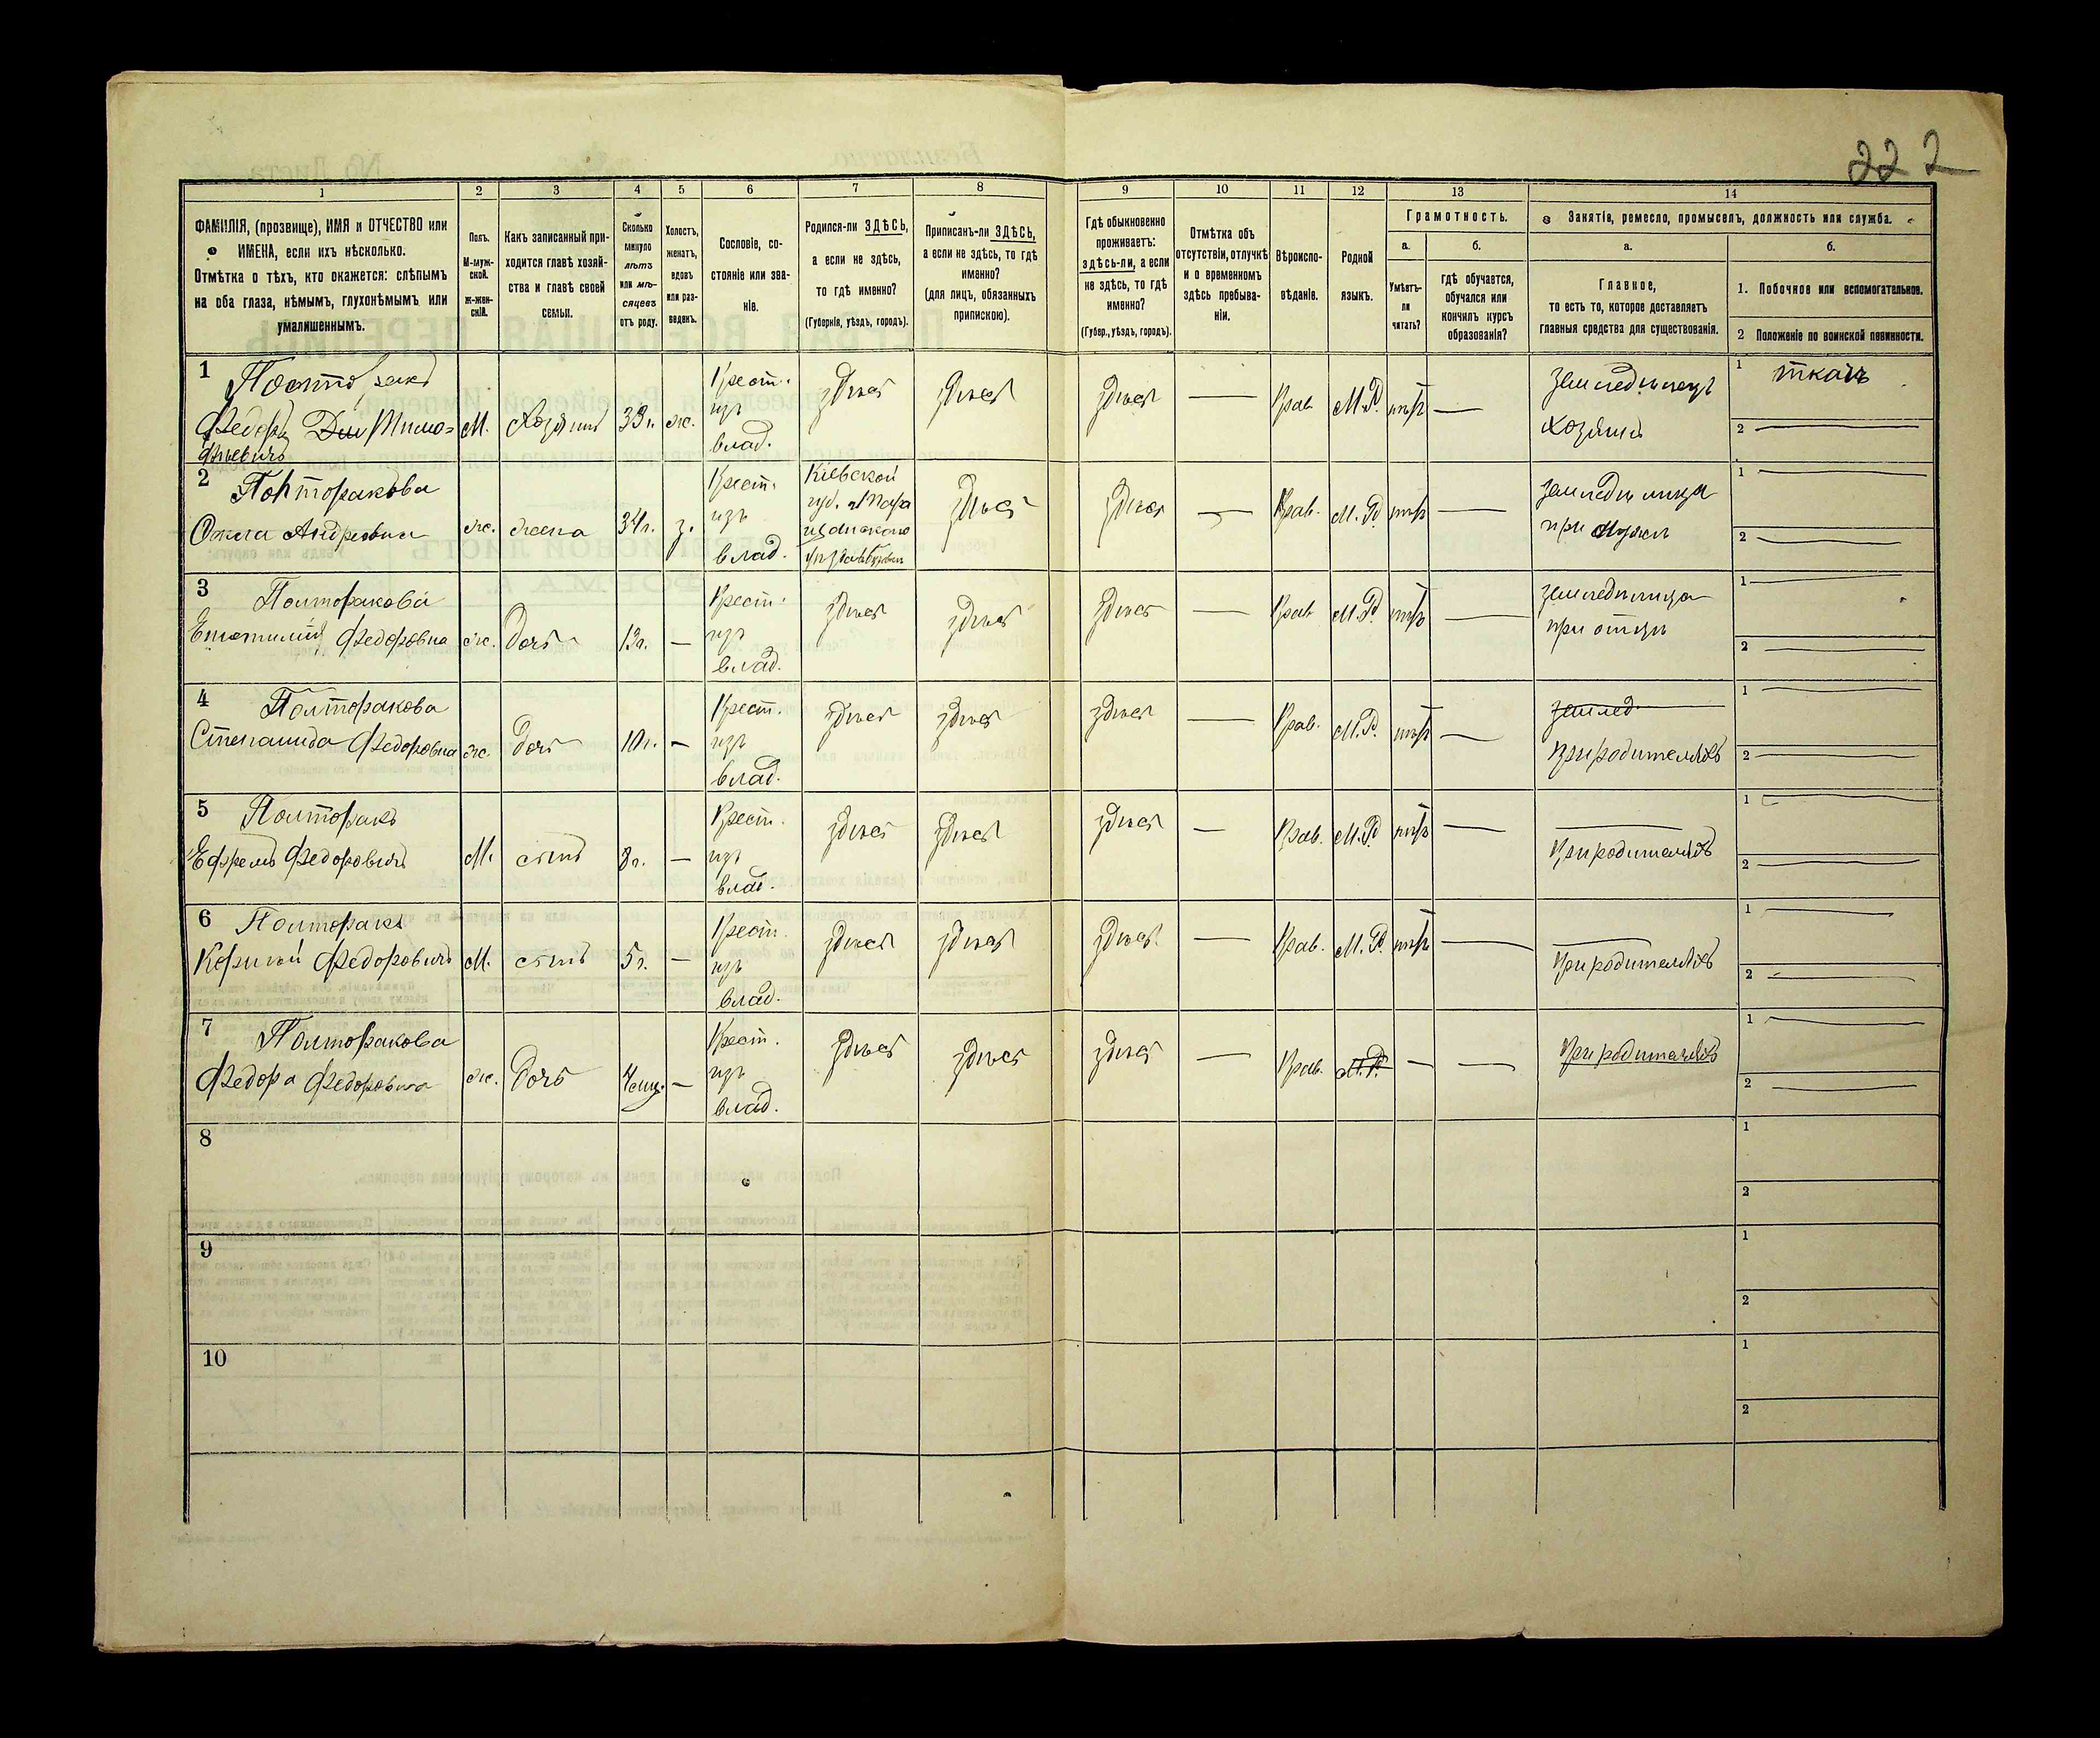 222
1 2 3 4 5 6 7 8 9 10 11 12 13 14
ФАМИЛІЯ, (прозвище), ИМЯ и ОТЧЕСТВО или
ИМЕНА, если ихъ нѣсколько.
Отмѣтка о тѣхъ, кто окажется: слѣпымъ
на оба глаза, нѣмымъ, глухонѣмымъ или
умалишеннымъ.
Полъ.
М-муж-
ской.
ж-жен-
скій.
Какъ записанный при-
ходится главѣ хозяй-
ства и главѣ своей
семьи.
Сколько
минуло
лѣтъ
или мѣ-
сяцевъ
отъ роду.
Холостъ,
женатъ,
вдовъ
или раз-
веденъ.
Сословіе, со-
стояніе или зва-
ніе.
Родился-ли ЗДѢСЬ,
а если не здѣсь,
то гдѣ именно?
(Губернія, уѣздъ, городъ).
Приписанъ-ли ЗДѢСЬ,
а если не здѣсь, то гдѣ
именно?
(для лицъ, обязанныхъ
припискою).
Гдѣ обыкновенно
проживаетъ:
здѣсь-ли, а если
не здѣсь, то гдѣ
именно?
(Губер., уѣздъ, городъ).
Отмѣтка объ
отсутствіи, отлучкѣ
и о временномъ
здѣсь пребыва-
ніи.
Вѣроиспо-
вѣданіе.
Родной
языкъ.
Грамотность.
а.
Умѣетъ-
ли
читать?
б.
гдѣ обучается,
обучался или
кончилъ курсъ
образованія?
Занятіе, ремесло, промыселъ, должность или служба.
а.
Главное,
то есть то, которое доставляетъ
главныя средства для существованія.
б.
1. Побочное или вспомогательное.
2 Положеніе по воинской повинности.
1
Федоръ Тимо=
фѣевичъ
М. Хозяинъ 33 г. ж.
Крест.
изъ
влад.
здѣсь здѣсь здѣсь — Прав. М.Р. нѣтъ —
земледѣлецъ
хозяинъ
1 ткачъ
2 —
2
Полторакова
Андреевна
ж. жена 34 г. з.
Крест.
изъ
влад.
Кіевской
губ.
здѣсь здѣсь — Прав. М.Р. нѣтъ —
земледѣлица
при мужѣ
1 —
2 —
3
Полторакова
Федоровна
ж. дочь 13 г. —
Крест.
изъ
влад.
здѣсь здѣсь здѣсь — Прав. М.Р. нѣтъ —
земледѣлица
при отцѣ
1 —
2 —
4
Полторакова
Степанида Федоровна
ж. дочь 10 г. —
Крест.
изъ
влад.
здѣсь здѣсь здѣсь — Прав. М.Р. нѣтъ —
землед.
при родителяхъ
1 —
2 —
5
Полторакъ
Ефремъ Федоровичъ
М. сынъ 8 г. —
Крест.
изъ
влад.
здѣсь здѣсь здѣсь — Прав. М.Р. нѣтъ —
при родителяхъ
1 —
2 —
6
Полторакъ
Корнѣй Федоровичъ
М. сынъ 5 г. —
Крест.
изъ
влад.
здѣсь здѣсь здѣсь — Прав. М.Р. нѣтъ —
при родителяхъ
1 —
2 —
7
Полторакова
Федора Федоровна
ж. дочь —
Крест.
изъ
влад.
здѣсь здѣсь здѣсь — Прав. М.Р. — —
при родителяхъ
1 —
2 —
8
1
2
9
1
2
10
1
2